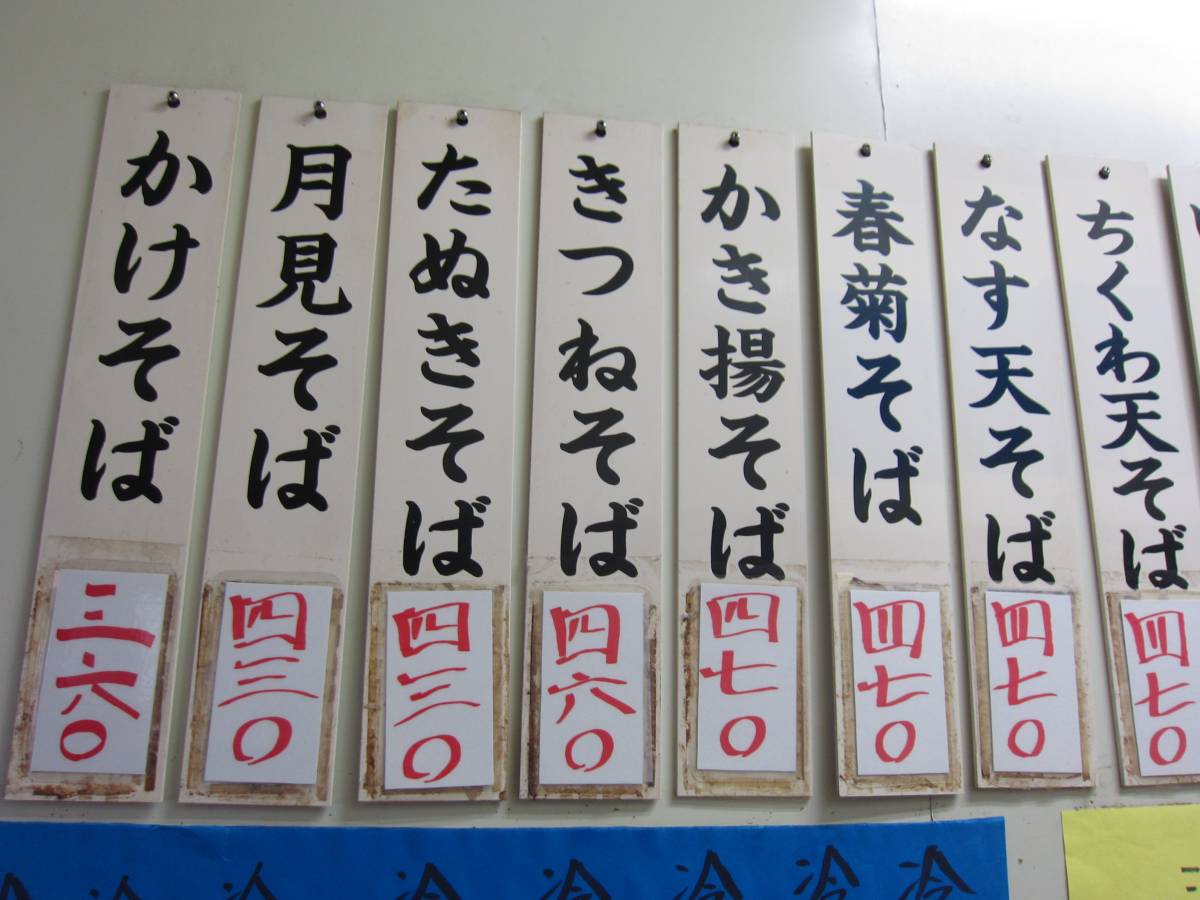 かけそば
三六〇
月見そば
四三〇
たぬきそば
四三〇
きつねそば
四六〇
かき揚そば
四七〇
春菊そば
四七〇
なす天そば
四七〇
ちくわ天そば
四七〇
冷
冷
冷
冷
冷
冷